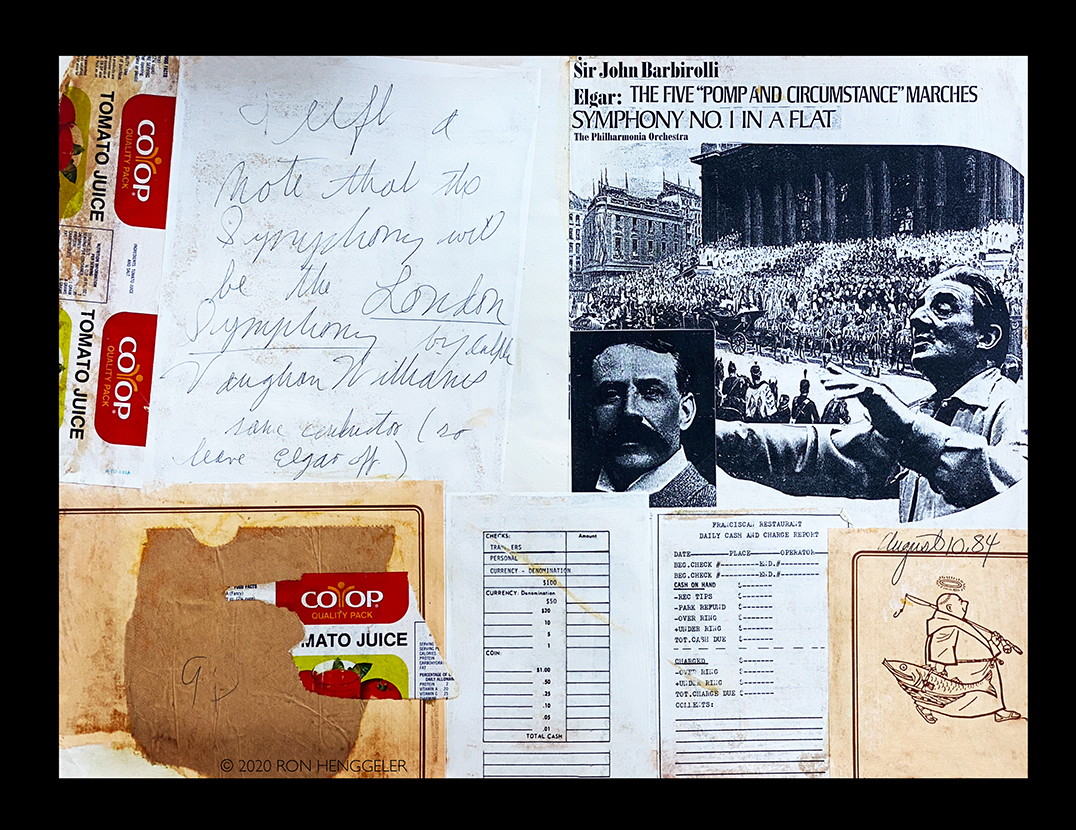 TOMATO JUICE
CO-OP
QUALITY PACK
TOMATO JUICE
CO-OP
QUALITY PACK
I left a
Note that the
Symphony will
be the London
Symphony by Ralph
Vaughan Williams
same conductor (so
leave Elgar off)
Sir John Barbirolli
Elgar: THE FIVE "POMP AND CIRCUMSTANCE" MARCHES
SYMPHONY NO. 1 IN A FLAT
The Philharmonia Orchestra
CO-OP
QUALITY PACK
MATO JUICE
CHECKS: Amount
TRAV LERS
PERSONAL
CURRENCY - DENOMINATION
$100
CURRENCY: Denomination
$50
$20
10
5
1
COIN:
$1.00
.50
.25
.10
.05
.01
TOTAL CASH
FRANCISCAN RESTAURANT
DAILY CASH AND CHARGE REPORT
DATE------PLACE------OPERATOR
BEG.CHECK #-------END.#-------
BEG.CHECK #-------END.#-------
CASH ON HAND $------
-REC TIPS $------
-PARK REFUND $------
-OVER RING $------
+UNDER RING $------
TOT.CASH DUE $------
CHARGED $------
-OVER RING $------
+UNDER RING $------
TOT.CHARGE DUE $------
COLLECTS:
August 10, 84
© 2020 RON HENGGELER